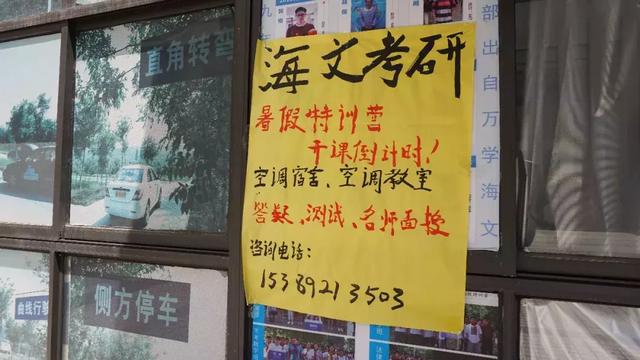 海文考研
暑假特训营
开课倒计时!
空调宿舍、空调教室
答疑、测试、名师面授
咨询电话:
15389213503
直角转弯
侧方停车
曲线行驶
部出自万学海文